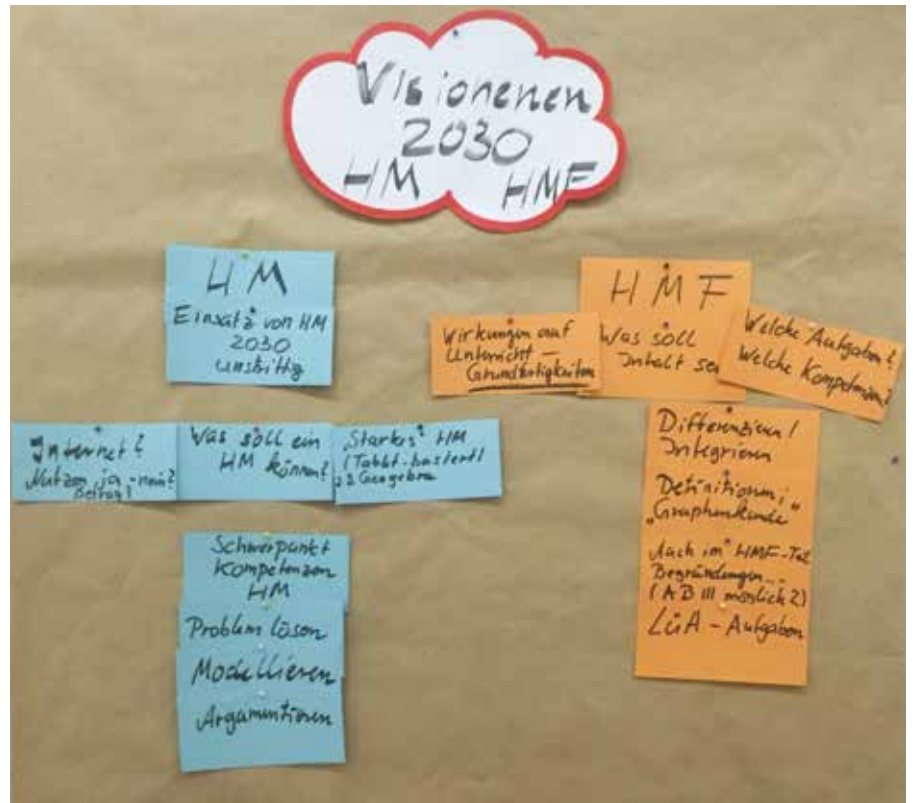 Visionenen
2030
HM HMF
HM
Einsatz von HM
2030
unstrittig
Internet?
Nutzen ja - nein?
Betrug?
Was soll ein
HM können?
"Starkes" HM
(Tablet-basiert)
z.B Geogebra
Schwerpunkt
Kompetenzen
HM
Problem lösen
Modellieren
Argumentieren
HMF
Was soll
Inhalt sein
Wirkungen auf
Unterricht -
Grundfertigkeiten
Welche Aufgaben?
Welche Kompetenzen?
Differenzieren/
Integrieren
Definitionen;
"Graphenkunde"
Auch im HMF-Teil
Begründungen...
(AB III möglich?)
LüA - Aufgaben